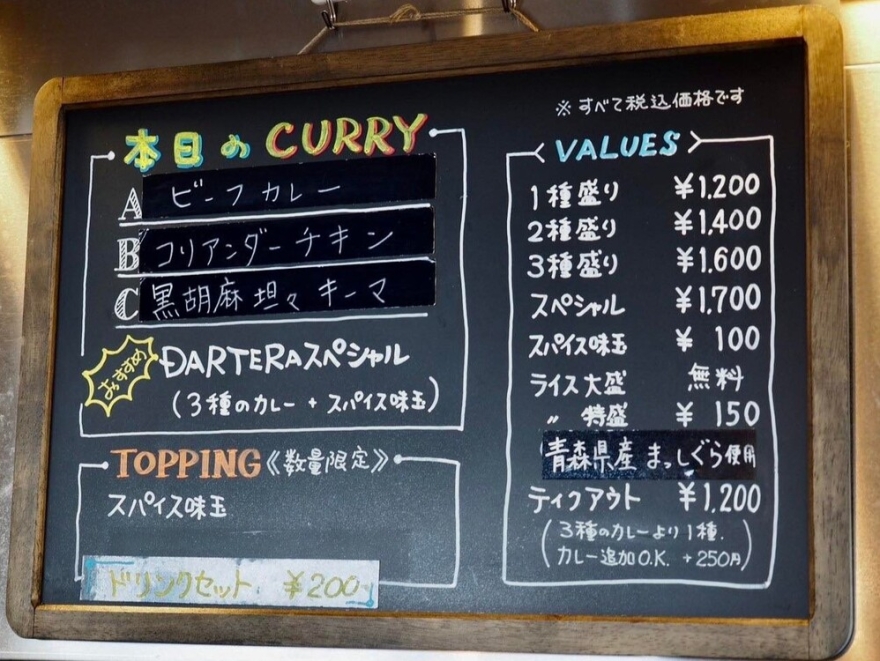 本日の CURRY
A ビーフカレー
B コリアンダーチキン
C 黒胡麻坦々キーマ
おすすめ
DARTERAスペシャル
(3種のカレー + スパイス味玉)
TOPPING《数量限定》
スパイス味玉
ドリンクセット ¥200
※すべて税込価格です
VALUES
1種盛り ¥1,200
2種盛り ¥1,400
3種盛り ¥1,600
スペシャル ¥1,700
スパイス味玉 ¥100
ライス大盛 無料
〃 特盛 ¥150
青森県産 まっしぐら使用
テイクアウト ¥1,200
(3種のカレーより1種.
カレー追加O.K. +250円)